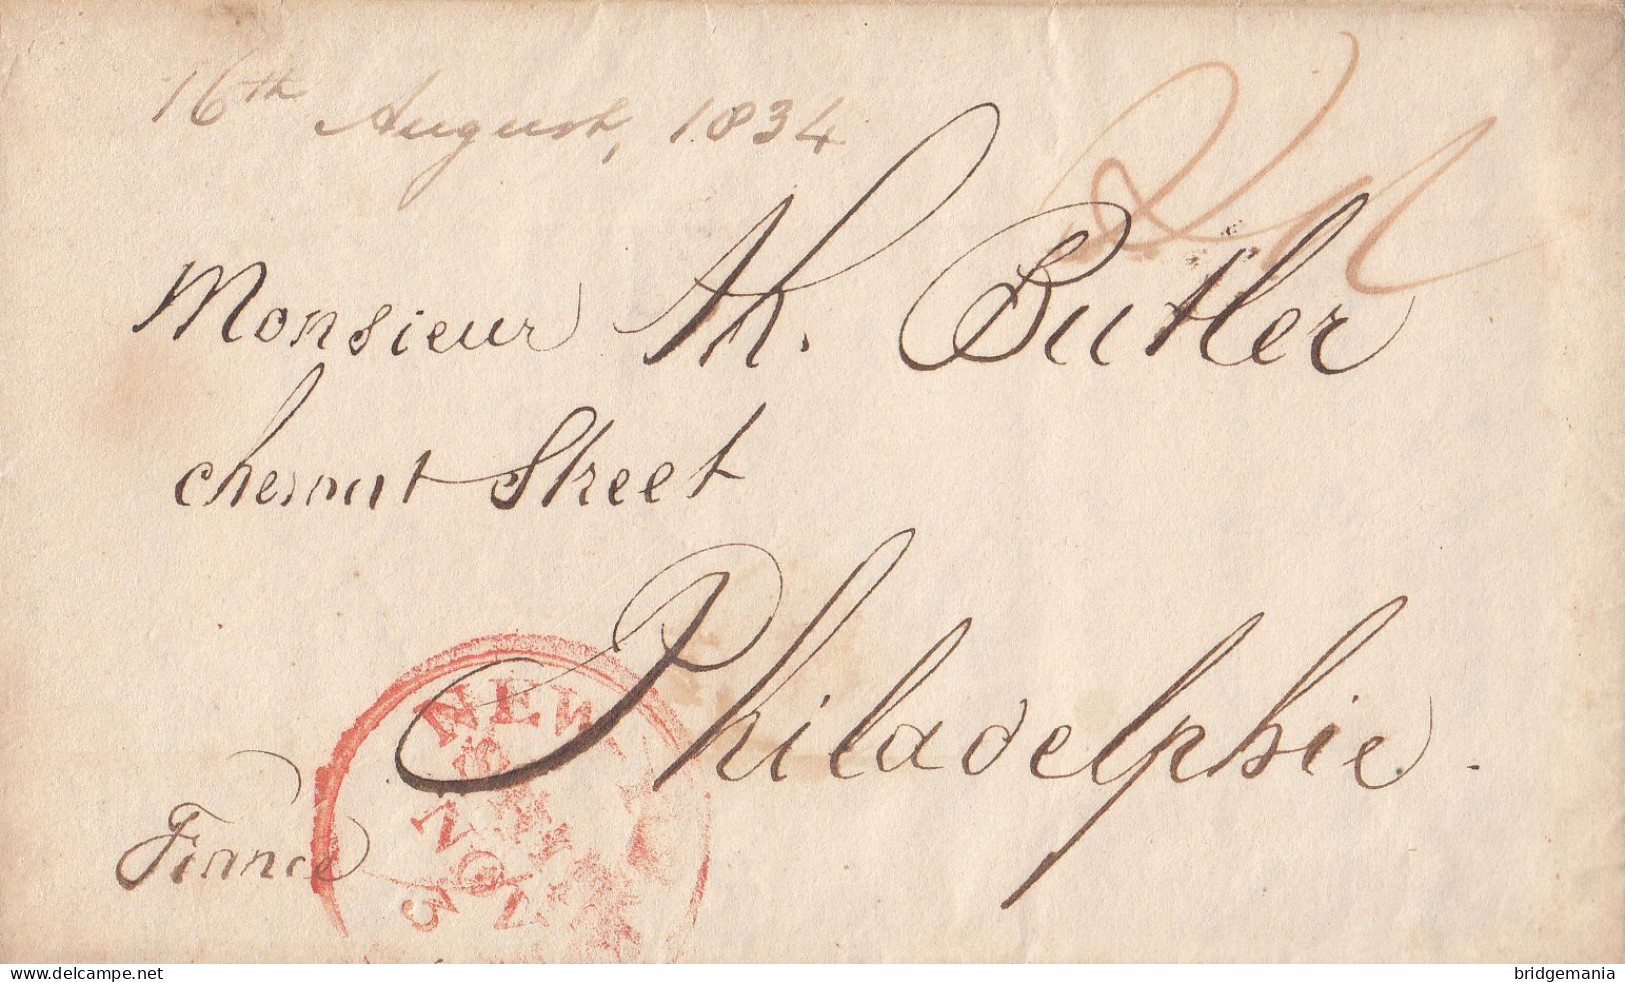 16th August, 1834
Monsieur Th. Butler
chesnut Street
Philadelphie.
France
NEW
www.delcampe.net
bridgemania